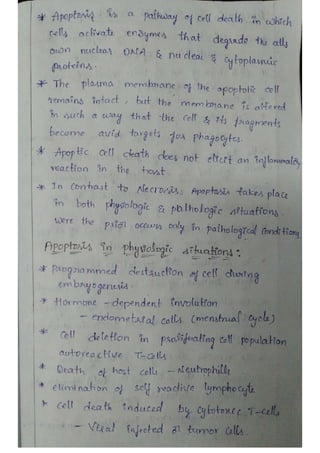 * Apoptosis is a pathway of cell death in which
cells activate enzymes that degrade the cells
own nuclear DNA & nuclear & cytoplasmic
proteins.
* The plasma membrane of the apoptotic cell
remains intact, but the membrane is altered
in such a way that the cell & its fragments
become avid targets for phagocytes.
* Apoptic cell death does not elicit an inflammatory
reaction in the host.
* In Contrast to Necrosis; Apoptosis takes place
in both physiologic & pathologic situations.
were the prior occurs only in pathological Conditions
Apoptosis in physiologic situations:
* Programmed destruction of cell during
embryogenesis.
* Hormone - dependent involution
- endometrial cells (menstrual cycle)
* Cell deletion in proliferating cell population
autoreactive T-cells
* Death of host cells - Neutrophills
* elimination of self reactive lymphocyte
* Cell death induced by Cytotoxic T-cells
- Viral infected or tumor cells.